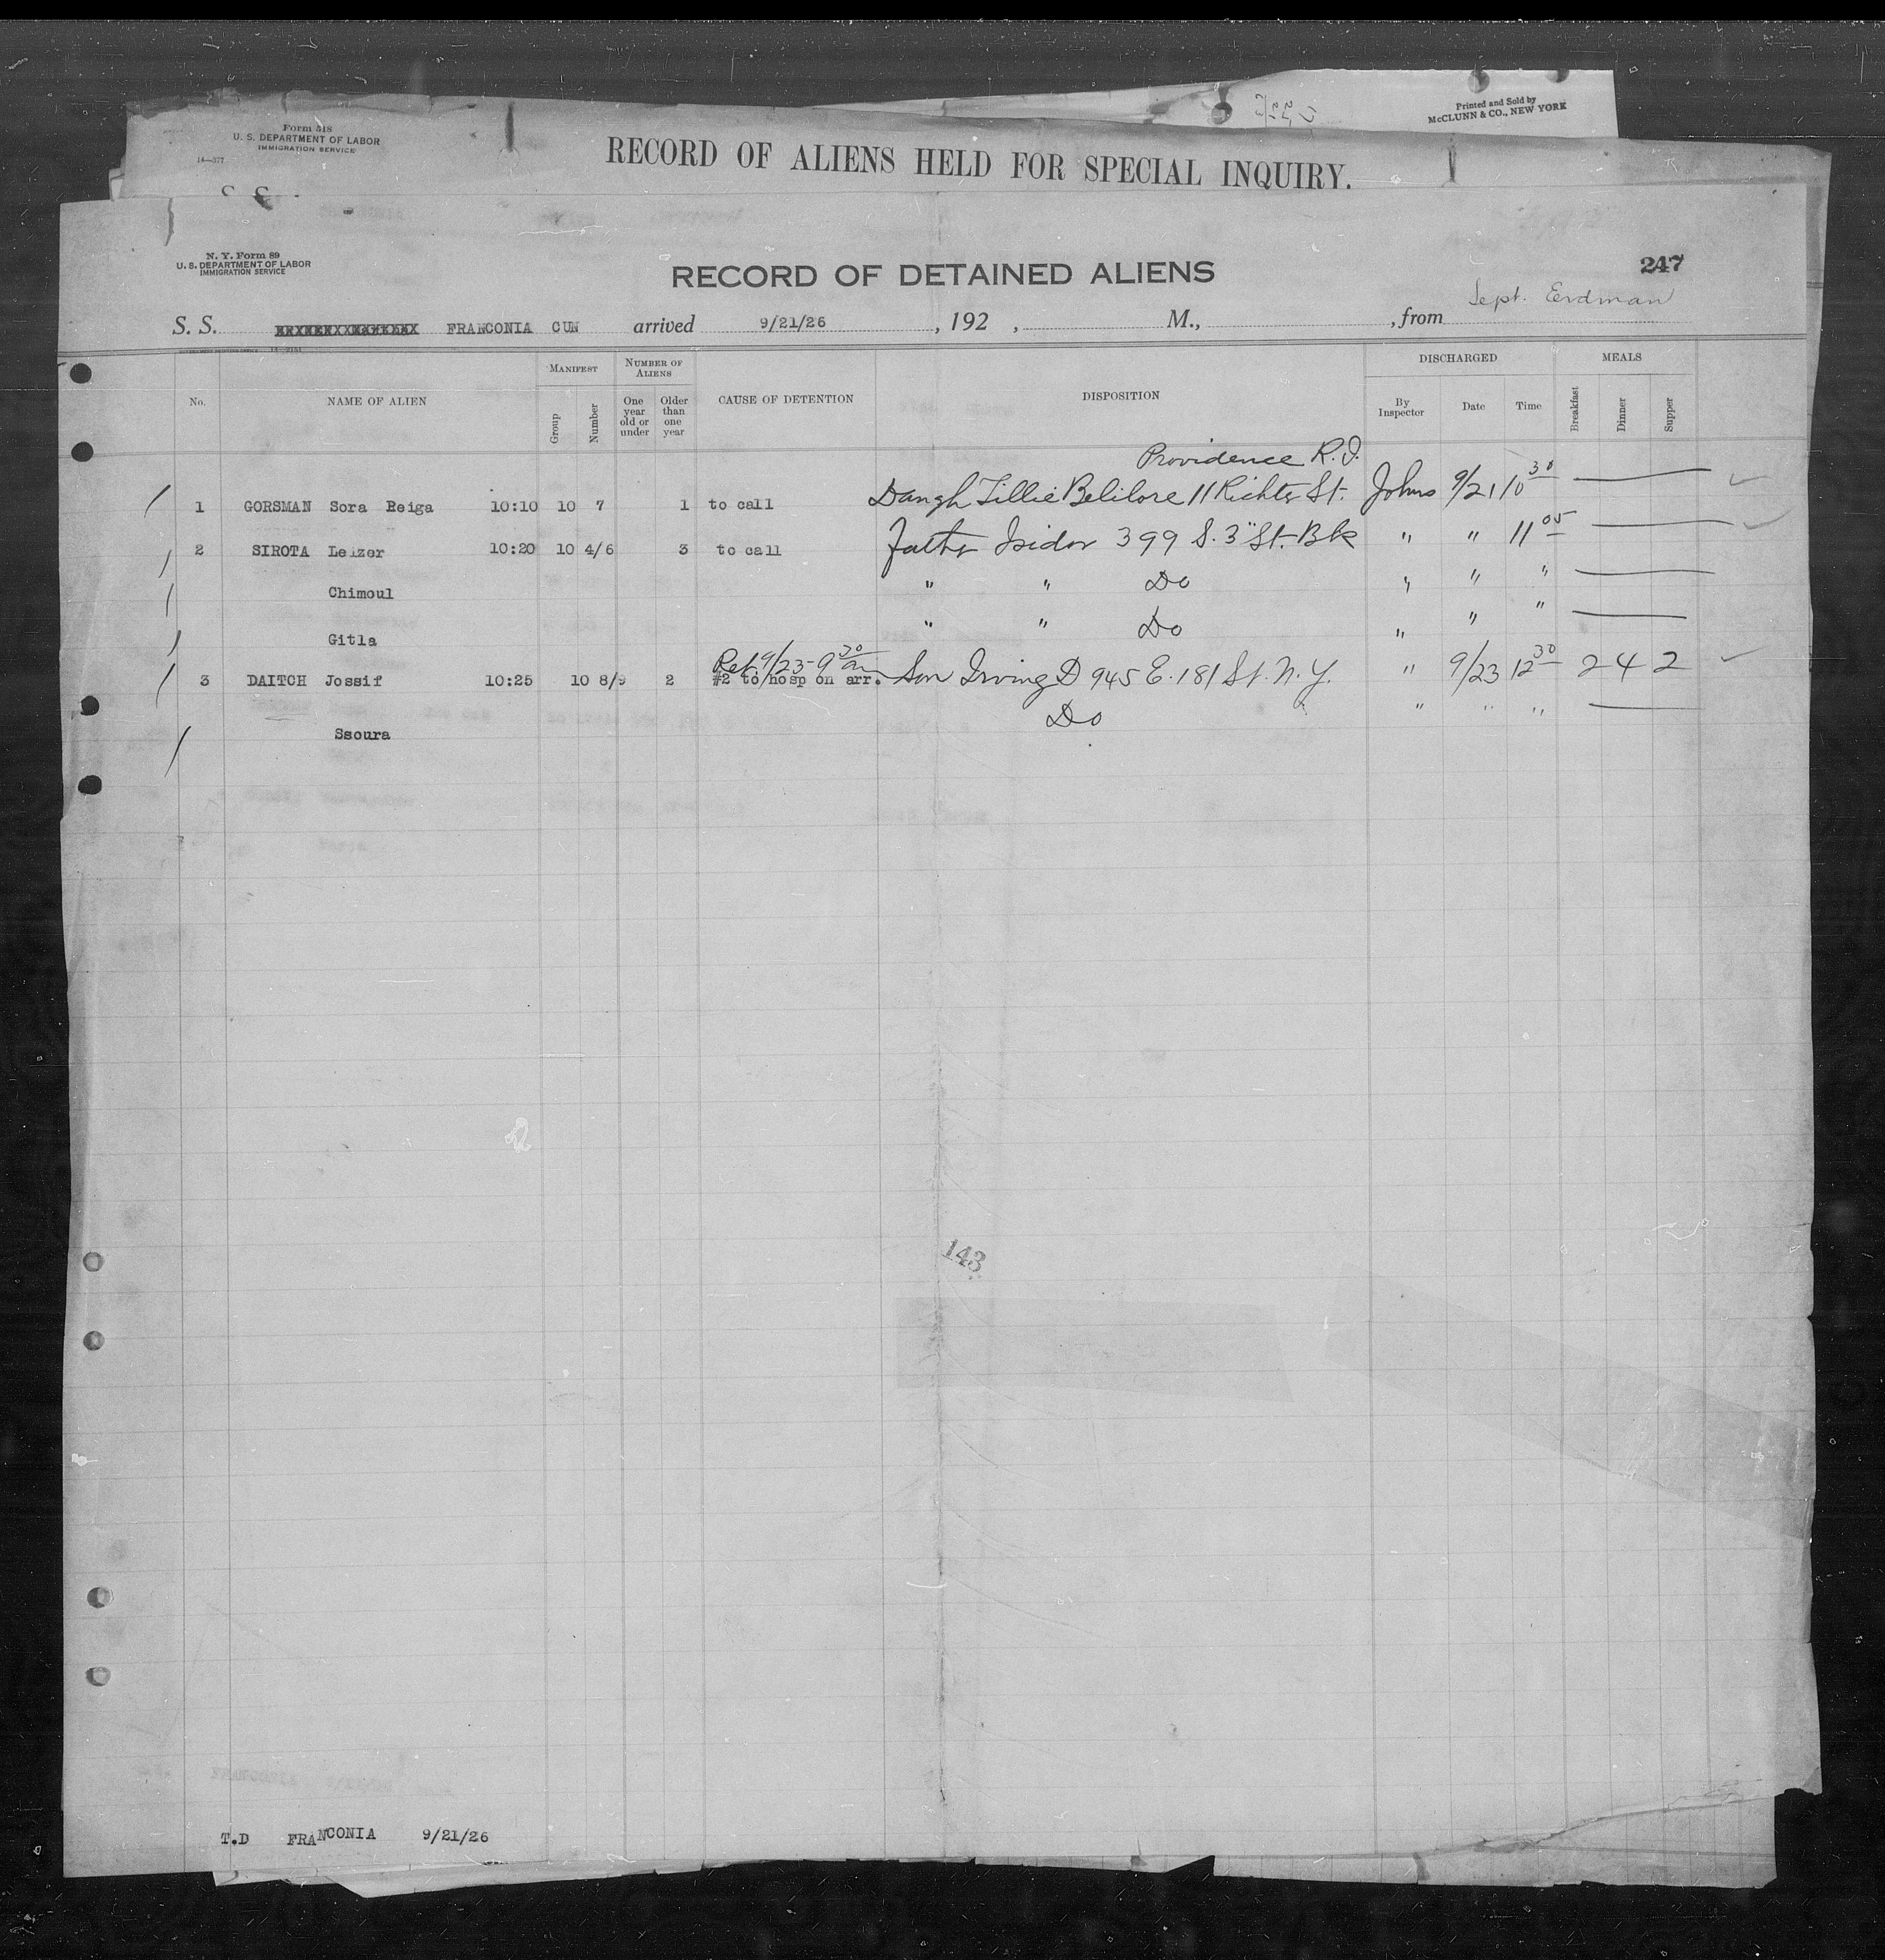 Printed and Sold by
McCLUNN & CO., NEW YORK
Form 518
U. S. DEPARTMENT OF LABOR
IMMIGRATION SERVICE
14—377
RECORD OF ALIENS HELD FOR SPECIAL INQUIRY.
N. Y. Form 89
U. S. DEPARTMENT OF LABOR
IMMIGRATION SERVICE
RECORD OF DETAINED ALIENS
247
Sept. Erdman
S. S. FRANCONIA CUN arrived 9/21/26, 192 , M., , from
No. NAME OF ALIEN MANIFEST Group Number NUMBER OF ALIENS One year old or under Older than one year CAUSE OF DETENTION DISPOSITION DISCHARGED By Inspector Date Time MEALS Breakfast Dinner Supper
Providence R.I.
1 GORSMAN Sora Reiga 10:10 10 7 1 to call Daugh Tillie Belilore 11 Richter St. Johns 9/21 10 30
2 SIROTA Leizer 10:20 10 4/6 3 to call Father Isidor 399 S. 3" St. Blk " " 11 05
Chimoul " " Do " " "
Gitla " " Do " " "
Ret 9/23 - 9 30 am
3 DAITCH Jossif 10:25 10 8/9 2 #2 to hosp on arr. Son Irving D 945 E. 181 St. N.Y. " 9/23 12 30 2 4 2
Ssoura Do " " "
143
T.D FRANCONIA 9/21/26